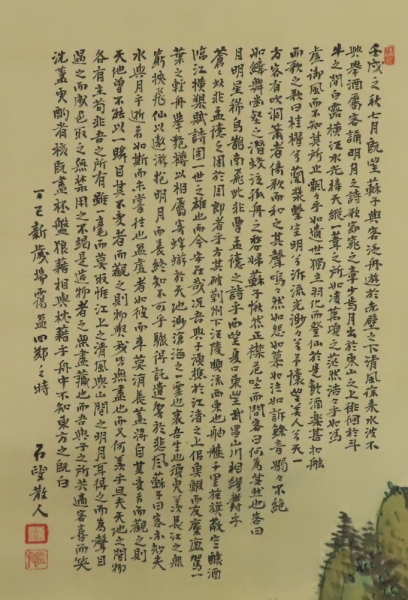 壬戌之秋七月既望蘇子與客泛舟遊於赤壁之下清風徐來水波不
興舉酒屬客誦明月之詩歌窈窕之章少焉月出於東山之上徘徊於斗
牛之間白露橫江水光接天縱一葦之所如凌萬頃之茫然浩浩乎如馮
虛御風而不知其所止飄飄乎如遺世獨立羽化而登仙於是飲酒樂甚扣舷
而歌之歌曰桂櫂兮蘭槳擊空明兮泝流光渺渺兮予懷望美人兮天一
方客有吹洞簫者倚歌而和之其聲嗚嗚然如怨如慕如泣如訴餘音嫋嫋不絕
如縷舞幽壑之潛蛟泣孤舟之嫠婦蘇子愀然正襟危坐而問客曰何為其然也客曰
月明星稀烏鵲南飛此非曹孟德之詩乎西望夏口東望武昌山川相繆鬱乎
蒼蒼此非孟德之困於周郎者乎方其破荊州下江陵順流而東也舳艫千里旌旗蔽空釃酒
臨江橫槊賦詩固一世之雄也而今安在哉況吾與子漁樵於江渚之上侶魚蝦而友麋鹿駕一
葉之輕舟舉匏樽以相屬寄蜉蝣於天地渺滄海之一粟也哀吾生之須臾羨長江之無
窮挾飛仙以遨遊抱明月而長終知不可乎驟得託遺響於悲風蘇子曰客亦知夫
水與月乎逝者如斯而未嘗往也盈虛者如彼而卒莫消長蓋將自其變者而觀之則
天地曾不能以一瞬自其不變者而觀之則物與我皆無盡也而又何羨乎且夫天地之間物
各有主苟非吾之所有雖一毫而莫取惟江上之清風與山間之明月耳得之而為聲目
遇之而成色取之無禁用之不竭是造物者之無盡藏也而吾與子之所共適客喜而笑
洗盞更酌肴核既盡杯盤狼藉相與枕藉乎舟中不知東方之既白
丁巳新歲瑞靄盈四鄰之時
石叟散人